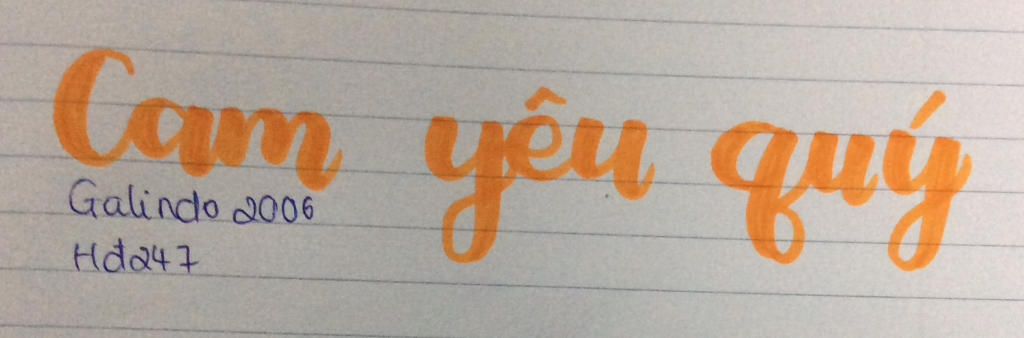 Cam yêu quý
Galindo 2006
Hđ247